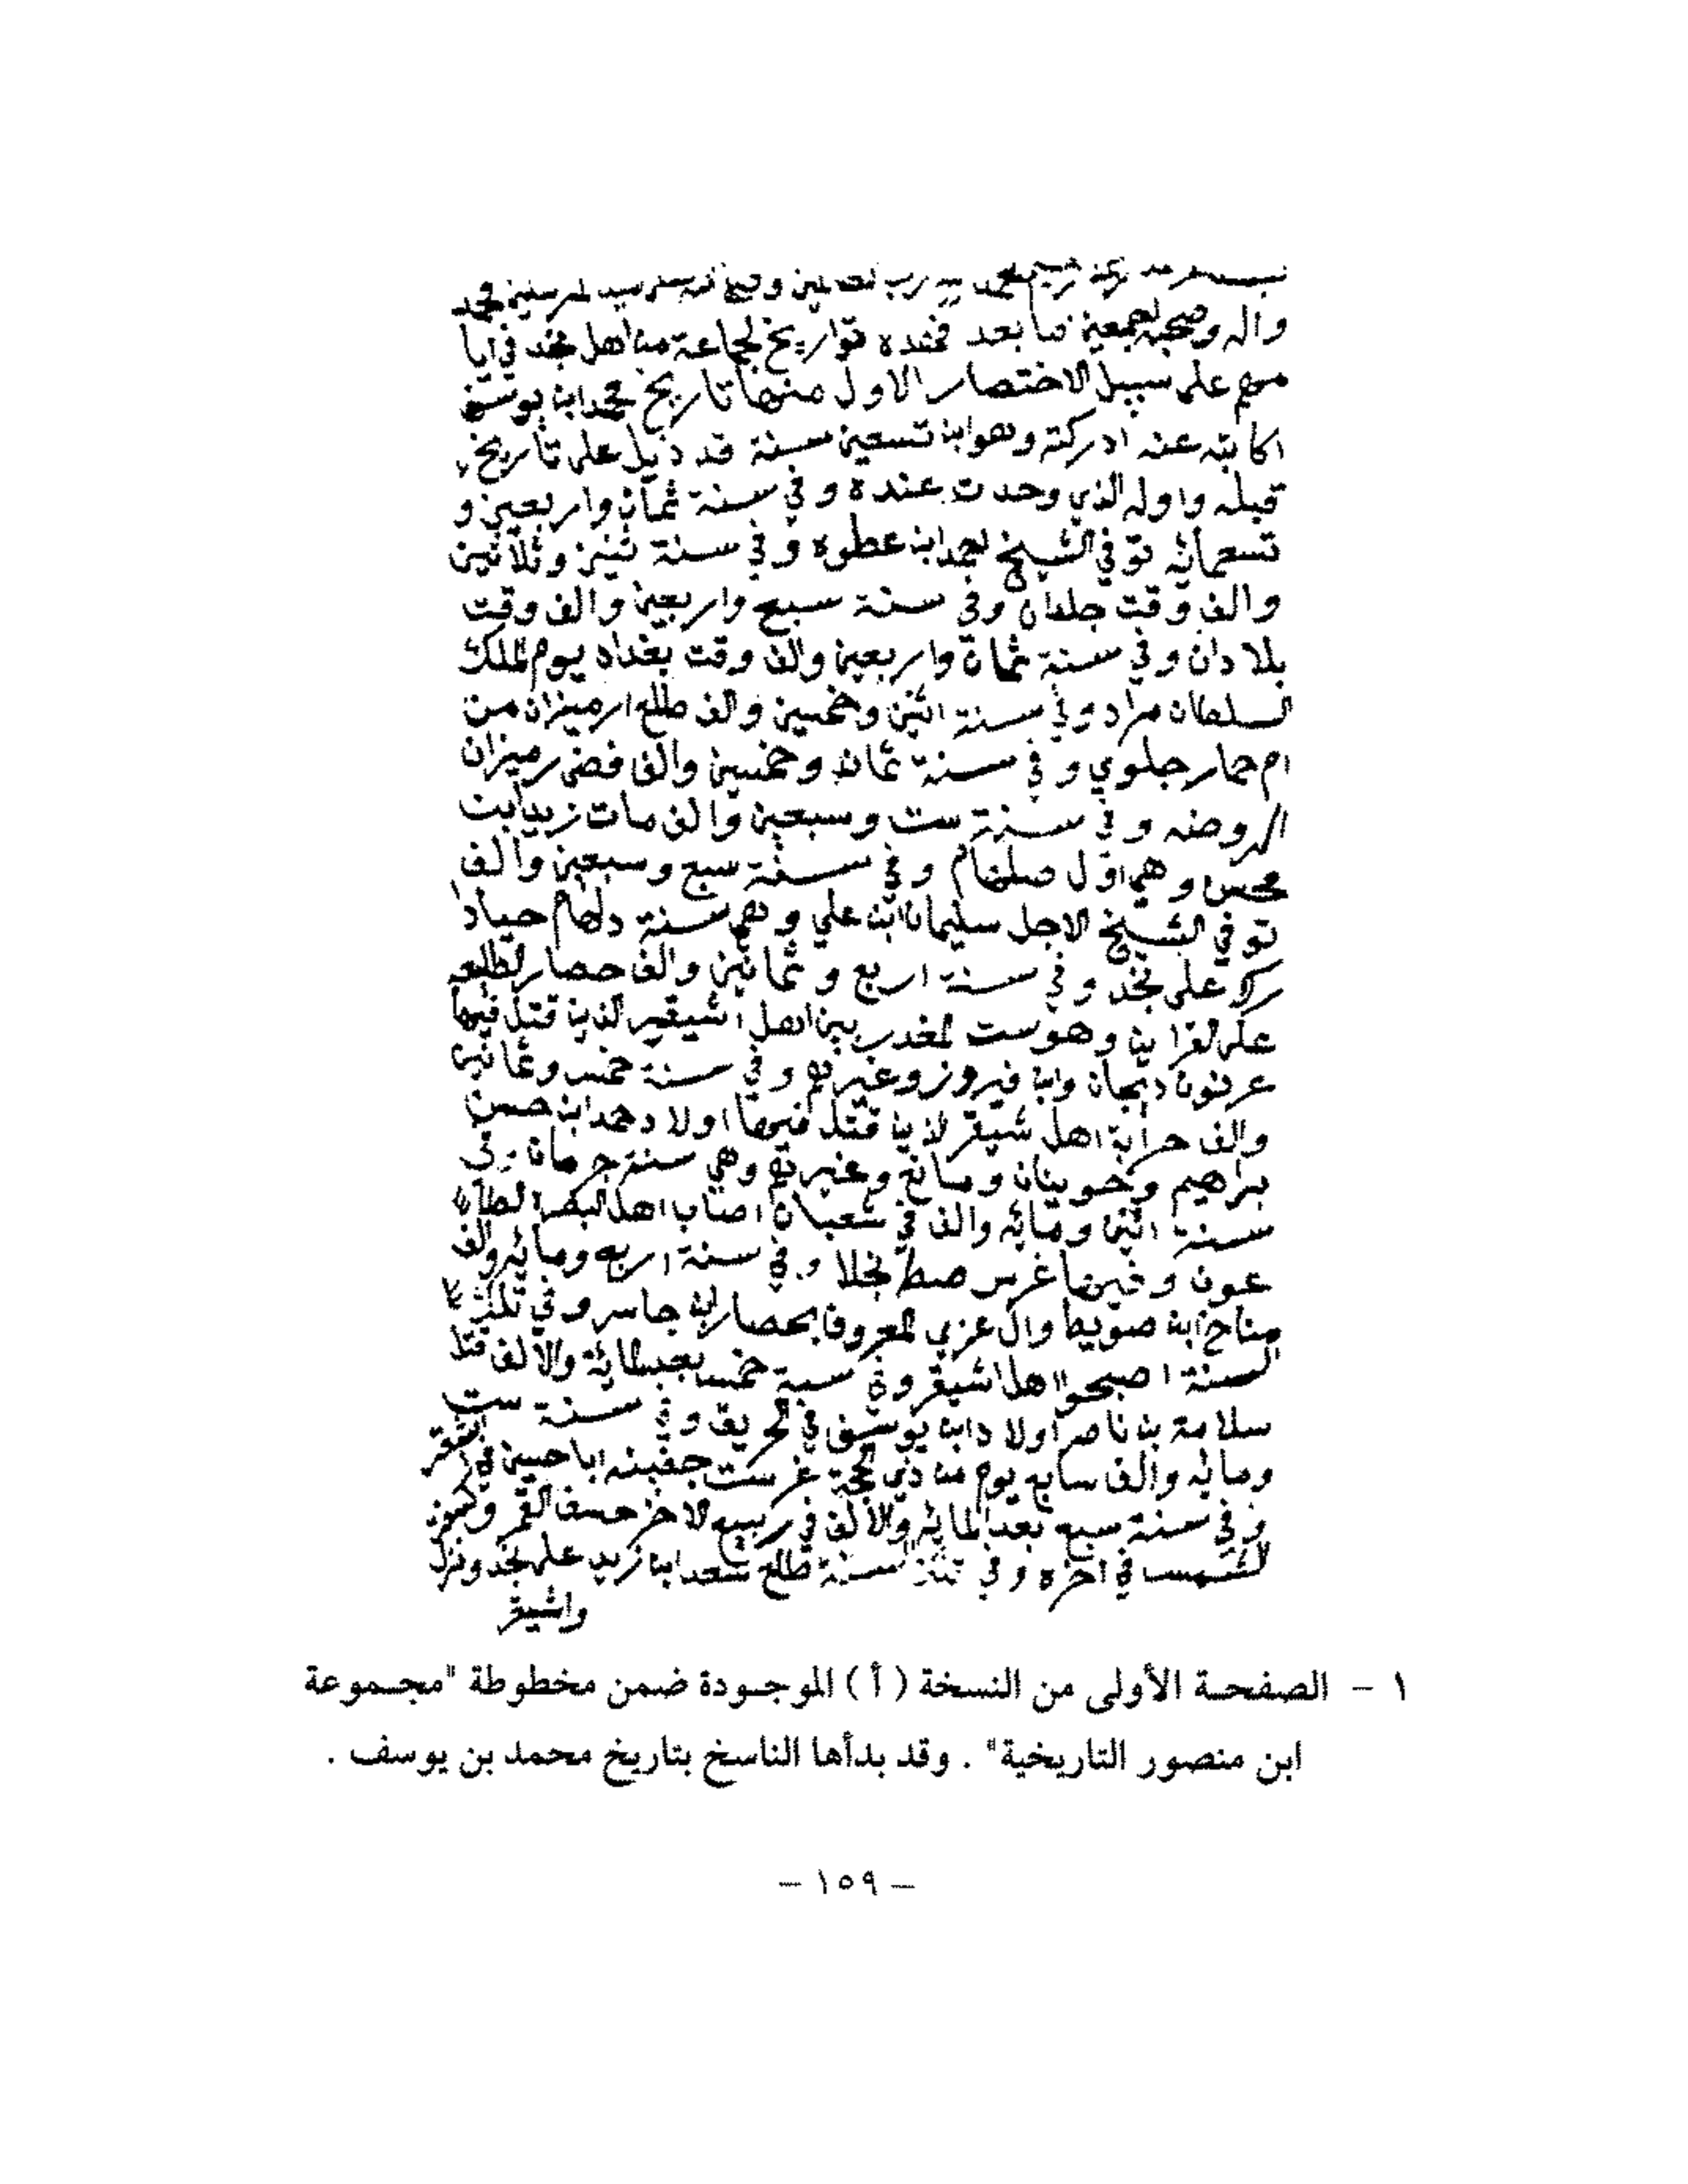 بسم الله الرحمن الرحيم الحمد لله رب العالمين وصلى الله على سيد المرسلين محمد
واله وصحبه اجمعين اما بعد فهذه تواريخ لجماعة من اهل نجد في ايا
مهم على سبيل الاختصار الاول منها تاريخ محمد ابن يوسف
كاتبه عنه ادركته وهو ابن تسعين سنة قد ذيل على تاريخ
قبله واوله الذي وجدت عنده وفي سنة ثمان واربعين و
تسعمائه توفي الشيخ احمد ابن عطوه وفي سنة ثنين وثلاثين
والف وقت جلدان وفي سنة سبع واربعين والف وقت
بلادان وفي سنة ثمان واربعين والف وقت بغداد يوم الملك
السلطان مراد وفي سنة اثنين وخمسين والف طلع ارميزان من
ام حمار جلوي وفي سنة ثمان وخمسين والف فضى رميزان
الروضه وفي سنة ست وسبعين والف مات زيد ابن
محسن وهي اول صلهام وفي سنة سبع وسبعين والف
توفي الشيخ الاجل سليمان ابن علي وهي سنة دلهام
على نجد وفي سنة اربع وثمانين والف حصار
على القراين وهوست المغدر بين اهل اشيقير الذين قتل فيها
وابن فيروز وغيرهم وفي سنة خمس وثمانين
والف حرابة اهل شيقر الذين قتل فيها اولاد حمد ابن حسن
براهيم وخوينان ومانع وغيرهم وهي سنة جرمان وفي
سنة اثنين ومائه والف في شعبان اصاب اهل البصرا الطا
عون وفيها غرس نخلا وفي سنة اربع ومائه والف
مناخ ابن صويط وال غزي المعروف بحصار ابن جاسر وفي تلك
السنة اصبحوا اهل اشيقر وفي سنة خمس بعد المائة والالف قتل
سلامة بن ناصر اولاد ابن يوسف في الحريق وفي سنة ست
ومائه والف سابع يوم من ذي الحجة غرست اباحسين في اشقر
وفي سنة سبع بعد المائه والالف في ربيع الاخر خسف القمر وكسف
الشمس في اخره وفي تلك السنة طلع سعد ابن زيد على نجد ونزل
واشيقر
١ - الصفحة الأولى من النسخة (أ) الموجودة ضمن مخطوطة "مجموعة
ابن منصور التاريخية" . وقد بدأها الناسخ بتاريخ محمد بن يوسف .
- ١٥٩ -